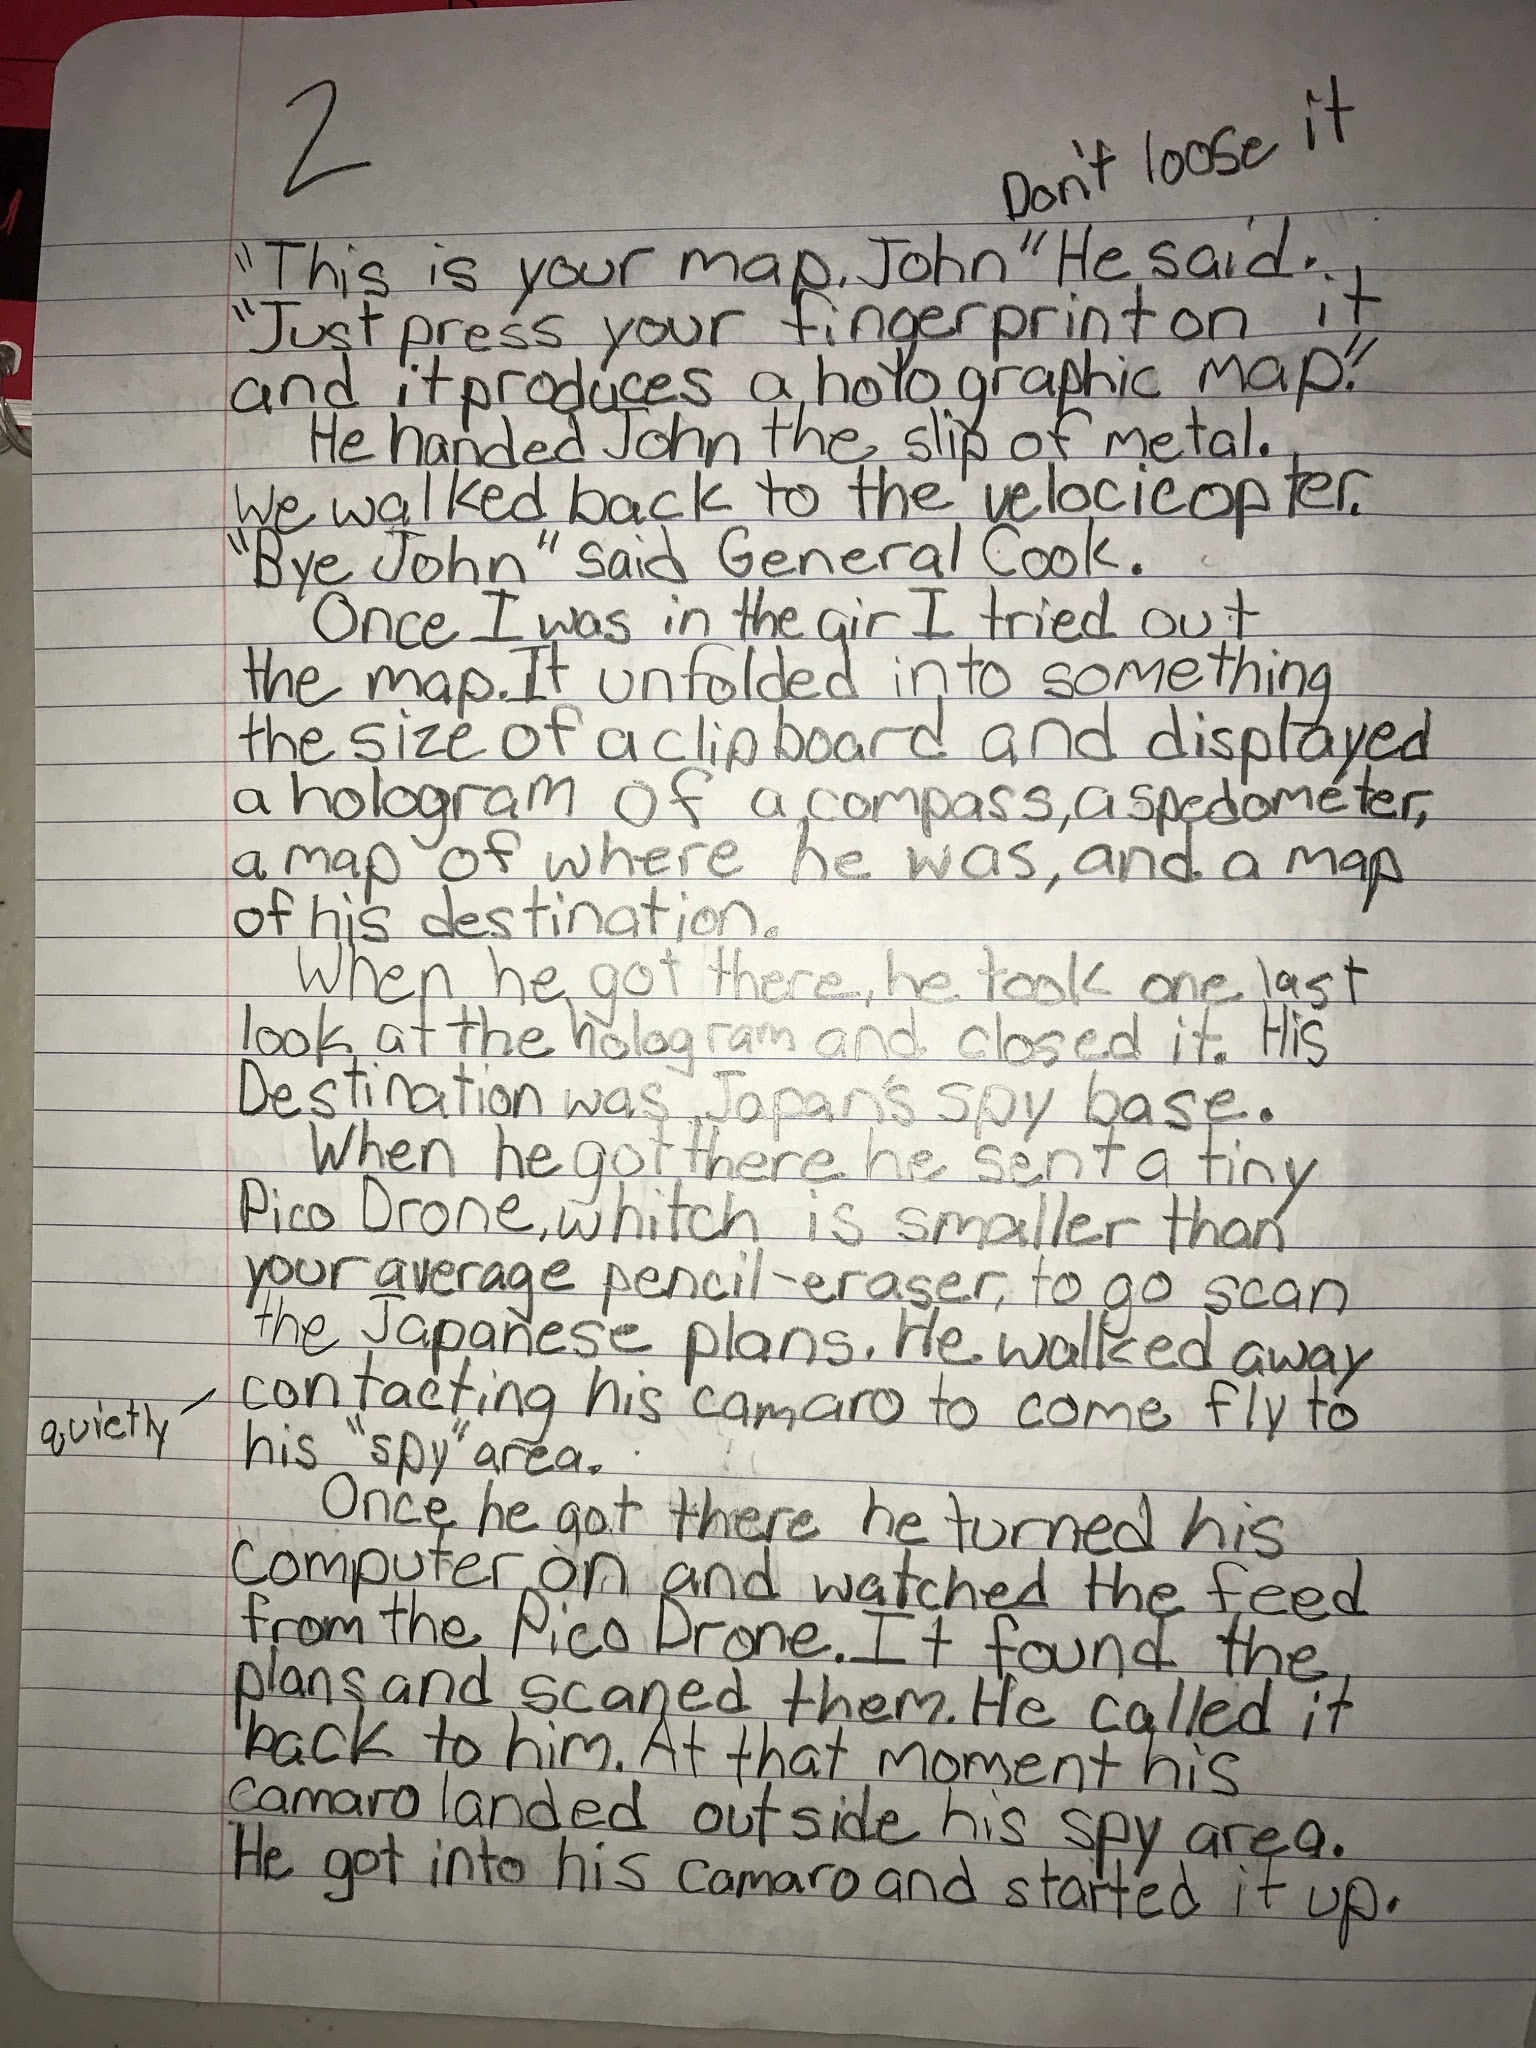 2
Don't loose it
"This is your map, John" He said.
"Just press your fingerprint on it
and it produces a holographic map."
He handed John the slip of metal.
We walked back to the velocicopter.
"Bye John" said General Cook.
Once I was in the air I tried out
the map. It unfolded into something
the size of a clipboard and displayed
a hologram of a compass, a spedometer,
a map of where he was, and a map
of his destination.
When he got there, he took one last
look at the hologram and closed it. His
Destination was Japan's spy base.
When he got there he sent a tiny
Pico Drone, whitch is smaller than
your average pencil-eraser, to go scan
the Japanese plans. He walked away
contacting his camaro to come fly to
quietly
his "spy" area.
Once he got there he turned his
computer on and watched the feed
from the Pico Drone. It found the
plans and scaned them. He called it
back to him. At that moment his
camaro landed outside his spy area.
He got into his camaro and started it up.